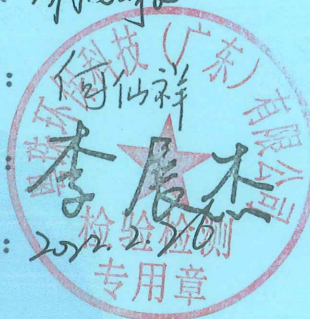 :
何仙祥
:
李展杰
:
2022.2.26
科技（广东）有限公司
检验检测
专用章